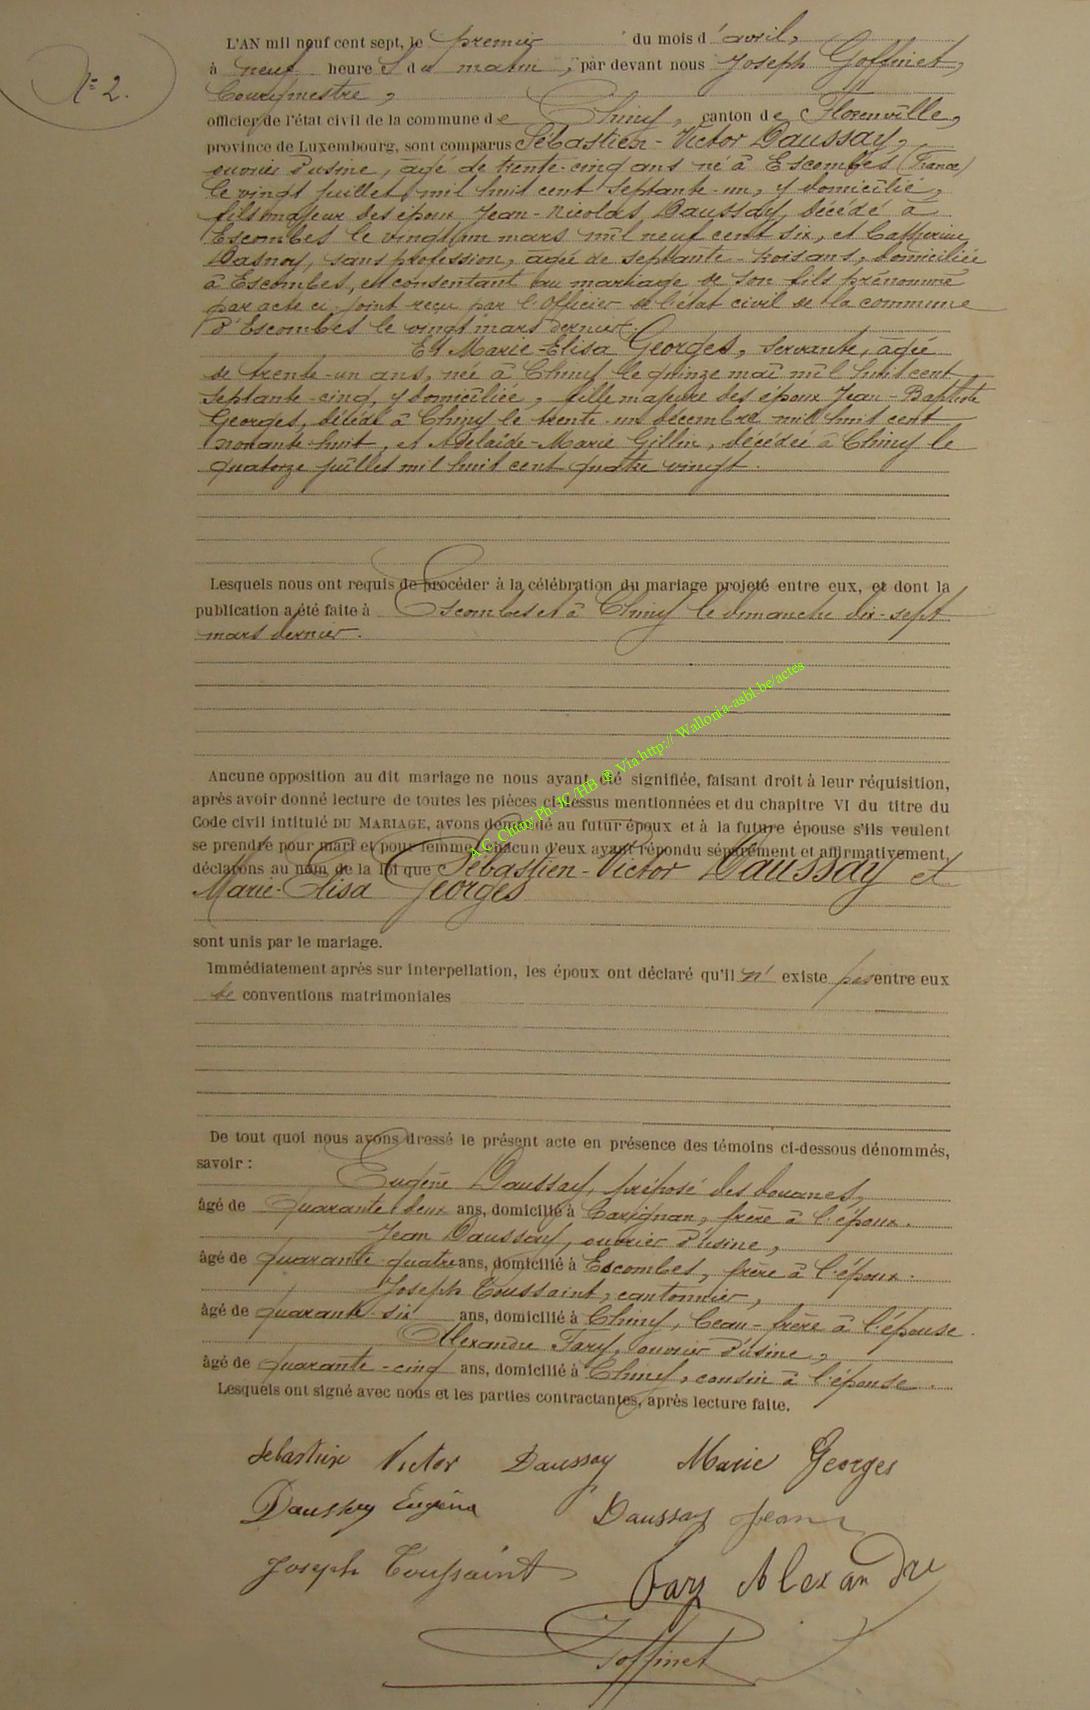 N° 2.
L'AN mil neuf cent sept, le premier du mois d'avril,
à neuf heures du matin, par devant nous Joseph Goffinet,
Bourgmestre,
officier de l'état civil de la commune de Chiny, canton de Florenville,
province de Luxembourg, sont comparus Sébastien-Victor Daussay,
ouvrier d'usine, âgé de trente-cinq ans né à Escombes (France)
le vingt juillet mil huit cent septante-un, y domicilié,
fils majeur des époux Jean-Nicolas Daussay, décédé à
Escombes le vingt un mars mil neuf cent six, et Catherine
Dasnoy, sans profession, âgée de septante-trois ans, domiciliée
à Escombes, et consentant au mariage de son fils prénommé
par acte ci-joint reçu par l'Officier de l'état civil de la commune
d'Escombes le vingt mars dernier.
Et Marie-Elisa Georges, servante, âgée
de trente-un ans, née à Chiny le quinze mai mil huit cent
septante-cinq, y domiciliée, fille majeure des époux Jean-Baptiste
Georges, décédé à Chiny le trente-un décembre mil huit cent
nonante-huit, et Adelaïde-Marie Gillin, décédée à Chiny le
quatorze juillet mil huit cent quatre vingt.
Lesquels nous ont requis de procéder à la célébration du mariage projeté entre eux, et dont la
publication a été faite à Escombes et à Chiny le dimanche dix-sept
mars dernier.
Aucune opposition au dit mariage ne nous ayant été signifiée, faisant droit à leur réquisition,
après avoir donné lecture de toutes les pièces ci-dessus mentionnées et du chapitre VI du titre du
Code civil intitulé DU MARIAGE, avons demandé au futur époux et à la future épouse s'ils veulent
se prendre pour mari et pour femme, chacun d'eux ayant répondu séparément et affirmativement,
déclarons au nom de la loi que Sébastien-Victor Daussay et
Marie-Elisa Georges
sont unis par le mariage.
Immédiatement après sur interpellation, les époux ont déclaré qu'il n'existe pas entre eux
de conventions matrimoniales
De tout quoi nous avons dressé le présent acte en présence des témoins ci-dessous dénommés,
savoir :
Eugène Daussay, préposé des douanes,
âgé de quarante deux ans, domicilié à Carignan, frère à l'époux.
Jean Daussay, ouvrier d'usine,
âgé de quarante-quatre ans, domicilié à Escombes, frère à l'époux.
Joseph Toussaint, cantonnier,
âgé de quarante-six ans, domicilié à Chiny, beau-frère à l'épouse.
Alexandre Fary, ouvrier d'usine,
âgé de quarante-cinq ans, domicilié à Chiny, cousin à l'épouse.
Lesquels ont signé avec nous et les parties contractantes, après lecture faite.
Sébastien Victor Daussay Marie Georges
Daussay Eugène Daussay Jean
Joseph Toussaint Fary Alexandre
Goffinet
A.C. Chiny Ph. JC/HB @ Via http:// Wallonia-asbl-be/actes